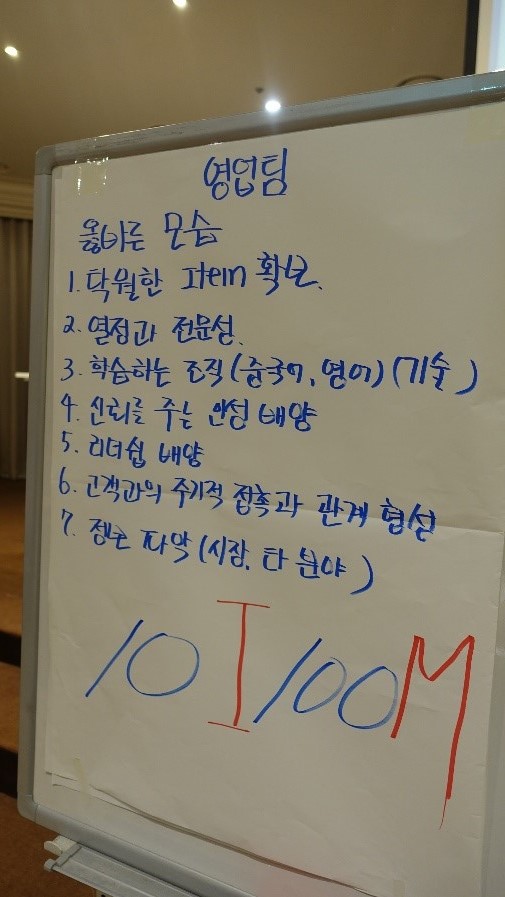 영업팀
올바른 모습
1. 탁월한 Item 확보.
2. 열정과 전문성.
3. 학습하는 조직 (중국어, 영어) (기술)
4. 신뢰를 주는 인성 배양
5. 리더쉽 배양
6. 고객과의 주기적 접촉과 관계 형성
7. 정보 파악 (시장, 타 분야)
10 I 100 M